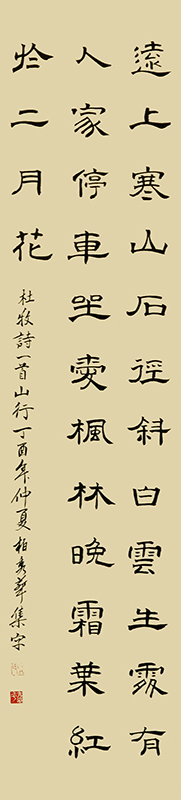 遠上寒山石徑斜白雲生處有
人家停車坐愛楓林晚霜葉紅
於二月花
杜牧詩一首山行丁酉年仲夏柏秀華集字